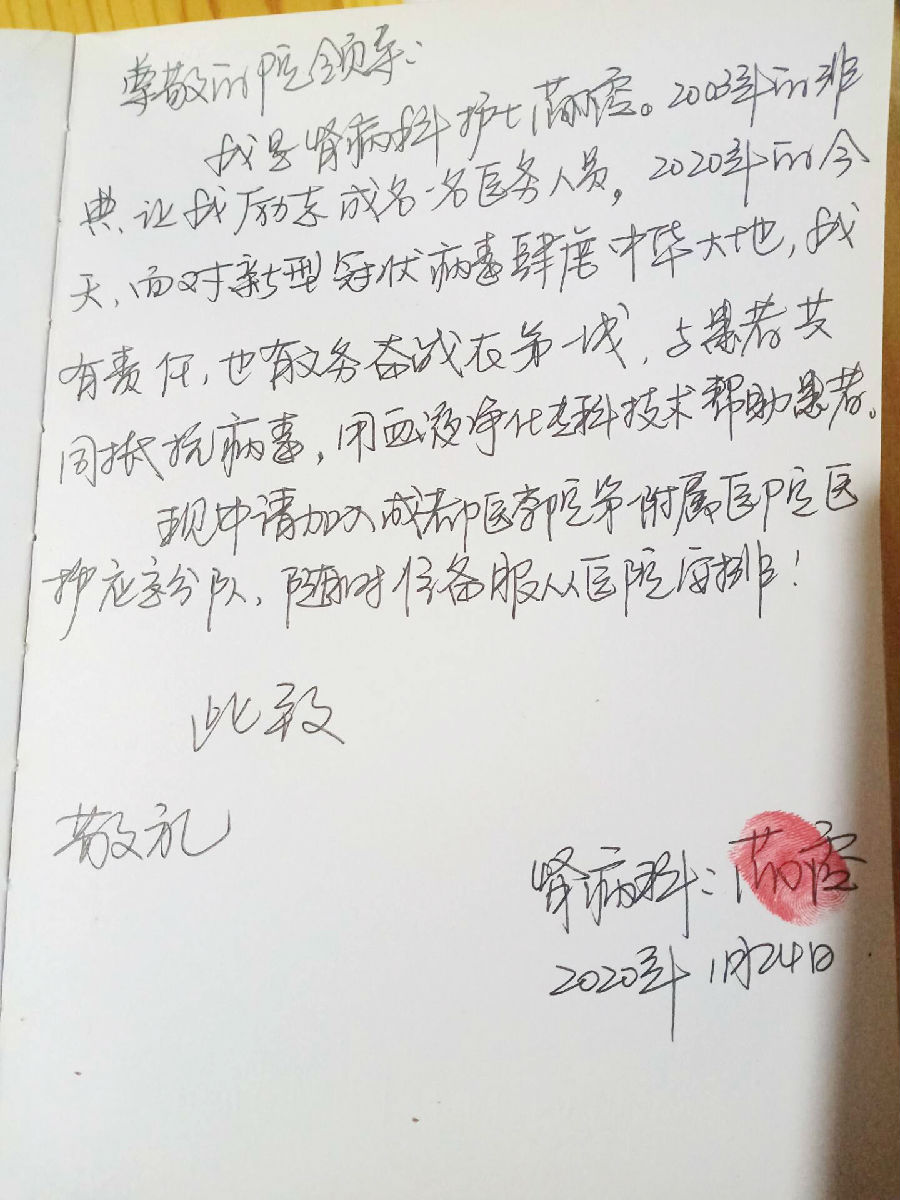 尊敬的院领导:
我是肾病科护士苗霞。2003年的非
典,让我励志成名一名医务人员。2020年的今
天,面对新型冠状病毒肆虐中华大地,我
有责任,也有义务奋战在第一线,与患者共
同抵抗病毒,用血液净化专科技术帮助患者。
现申请加入成都医学院第一附属医院医
护应急分队,随时准备服从医院安排!
此致
敬礼
肾病科:
2020年1月24日